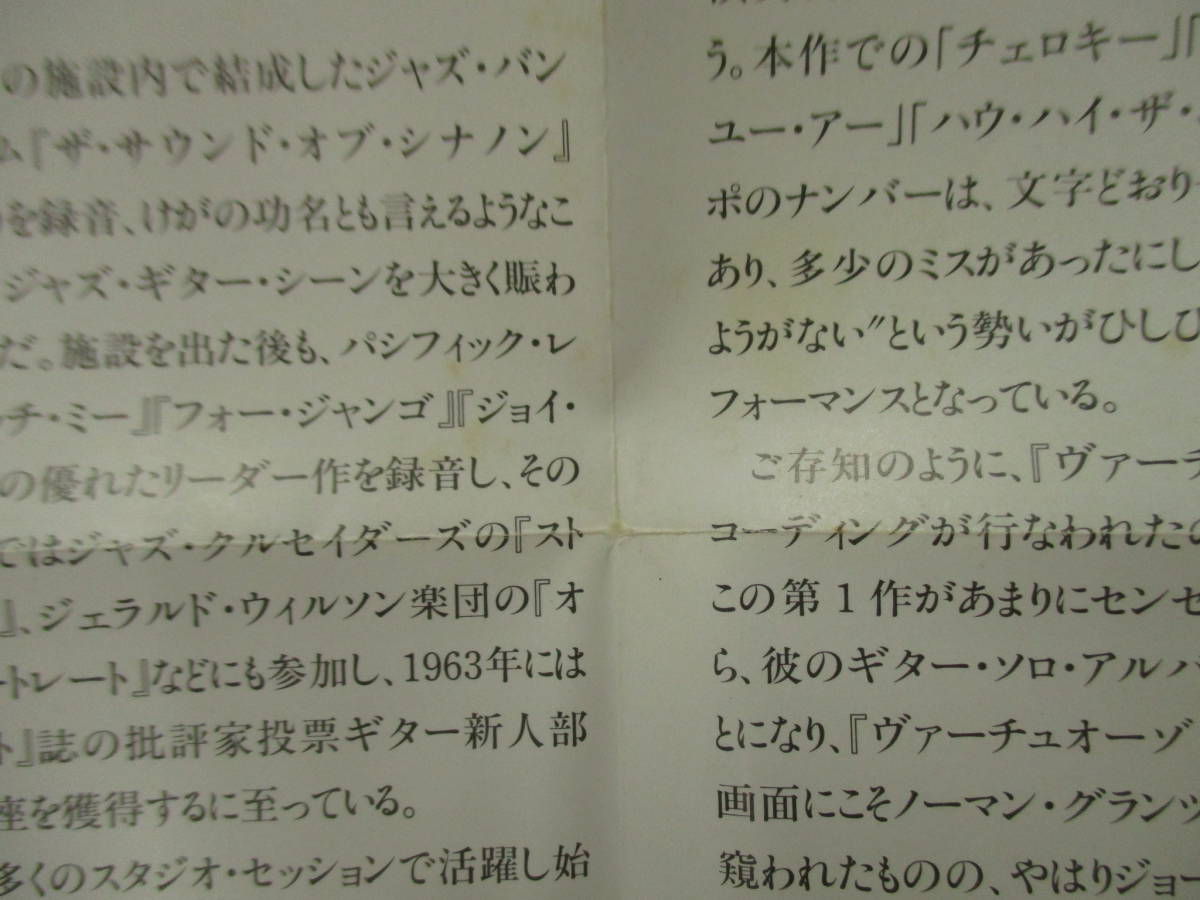 の施設内で結成したジャズ・バン
ム『ザ・サウンド・オブ・シナノン』
を録音、けがの功名とも言えるようなこ
ジャズ・ギター・シーンを大きく賑わ
だ。施設を出た後も、パシフィック・レ
ッチ・ミー』『フォー・ジャンゴ』『ジョイ・
の優れたリーダー作を録音し、その
ではジャズ・クルセイダーズの『スト
』、ジェラルド・ウィルソン楽団の『オ
ートレート』などにも参加し、1963年には
ト』誌の批評家投票ギター新人部
座を獲得するに至っている。
多くのスタジオ・セッションで活躍し始
う。本作での「チェロキー」「
ユー・アー」「ハウ・ハイ・ザ・
ポのナンバーは、文字どおり
あり、多少のミスがあったにし
ようがない”という勢いがひしひ
フォーマンスとなっている。
ご存知のように、『ヴァーチ
コーディングが行なわれたの
この第1作があまりにセンセ
ら、彼のギター・ソロ・アルバ
とになり、『ヴァーチュオーゾ
画面にこそノーマン・グランツ
窺われたものの、やはりジョー